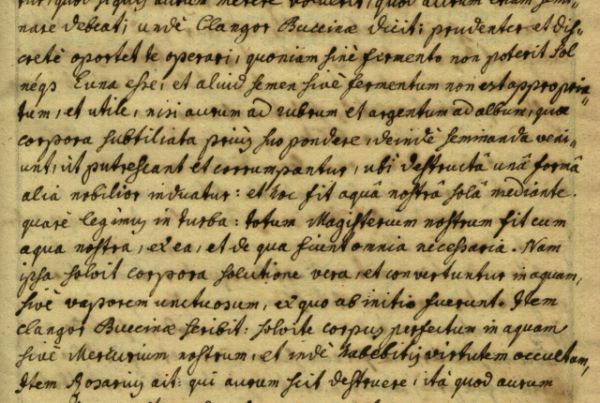 nare debeat; undè Clangor Buccinæ dicit: prudenter et dis„
cretè oportet te operari, quoniam sinè fermento non poterit Sol
néqȝ Luna esse; et aliud semen sivè fermentum non est appropria„
tum, et utile, nisi aurum ad rubrum et argentum ad album, quæ
corpora subtiliata priùs suo pondere, deindè seminanda veni„
unt, ut putrescant et corrumpantur, ubi destructâ unâ formâ
alia nobilior induatur: et hoc fit aquâ nostrâ solâ mediante.
quarè legimus in turba: totum Magisterium nostrum fit cum
aqua nostra, ex ea, et de qua fiunt omnia necessaria. Nam
ipsa solvit corpora solutione vera, et convertuntur in aquam,
sivè vaporem unctuosum, ex quo ab initio fuerunt. Item
Clangor Buccinæ scribit: solvite corpus perfectum in aquam
sivè Mercurium nostrum, et indè habebitis virtutem occultam,
Item Rosarius ait: qui aurum scit destruere, ità quod aurum